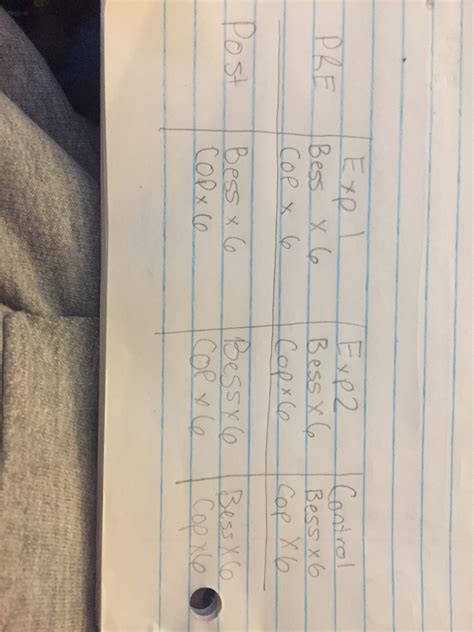 Exp 1 Exp2 Control
PRE Bess x 6 Bess x 6 Bess x 6
Cop x 6 Cop x 6 Cop x 6
Post Bess x 6 Bess x 6 Bess x 6
Cop x 6 Cop x 6 Cop x 6